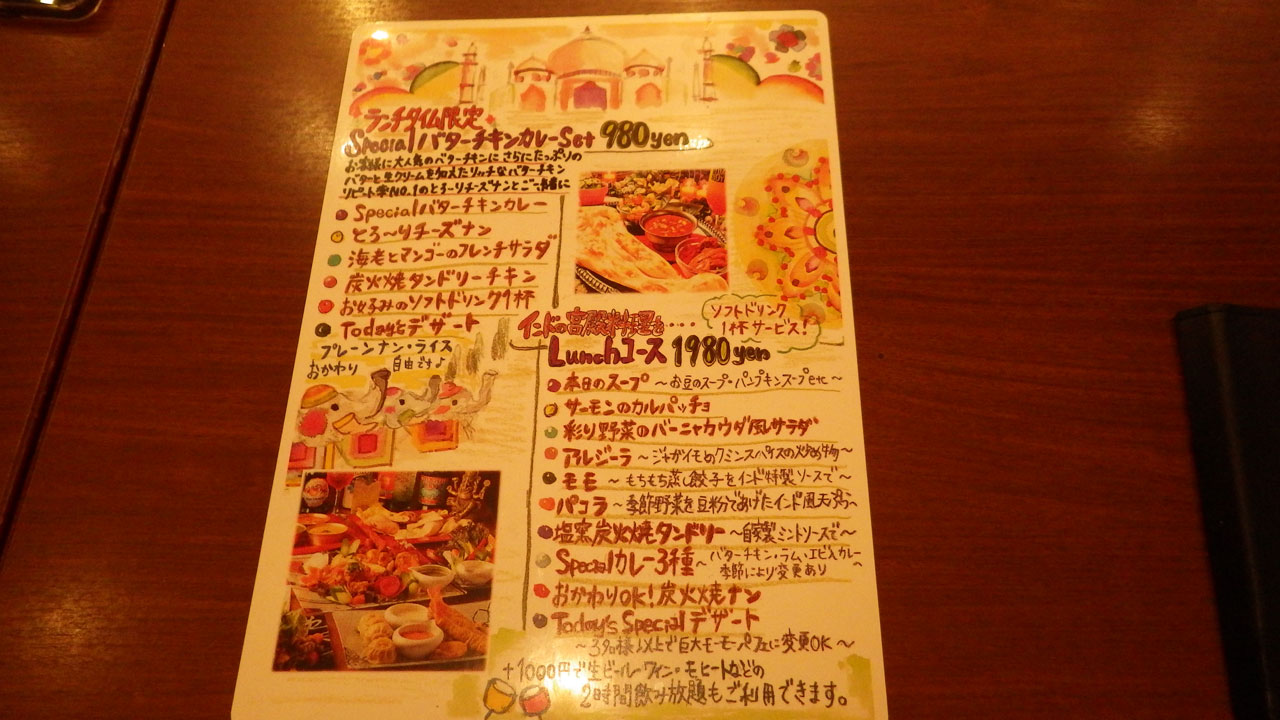 ランチタイム限定
Specialバターチキンカレーset 980yen
お客様に大人気のバターチキンにさらにたっぷりの
バターと生クリームを加えたリッチなバターチキン
リピート率NO.1のとろーりチーズナンとご一緒に
Specialバターチキンカレー
とろ〜りチーズナン
海老とマンゴーのフレンチサラダ
炭火焼タンドリーチキン
お好みのソフトドリンク1杯
Today'sデザート
プレーンナン・ライス
おかわり 自由です♪
ソフトドリンク
1杯サービス!
インドの宮殿料理を・・・・
Lunchコース 1980yen
本日のスープ 〜お豆のスープ・パンプキンスープetc〜
サーモンのカルパッチョ
彩り野菜のバーニャカウダ風サラダ
アルジーラ 〜ジャガイモのクミンスパイスの炒め物〜
モモ 〜もちもち蒸し餃子をインド特製ソースで〜
パコラ 〜季節野菜を豆粉であげたインド風天ぷら〜
塩窯炭火焼タンドリー 〜自家製ミントソースで〜
Specialカレー3種 〜バターチキン・ラム・エビカレー
季節により変更あり〜
おかわりOK!炭火焼ナン
Today's Specialデザート
〜3名様以上で巨大モーモーパフェに変更OK〜
+1000円で生ビール・ワイン・モヒートなどの
2時間飲み放題もご利用できます。